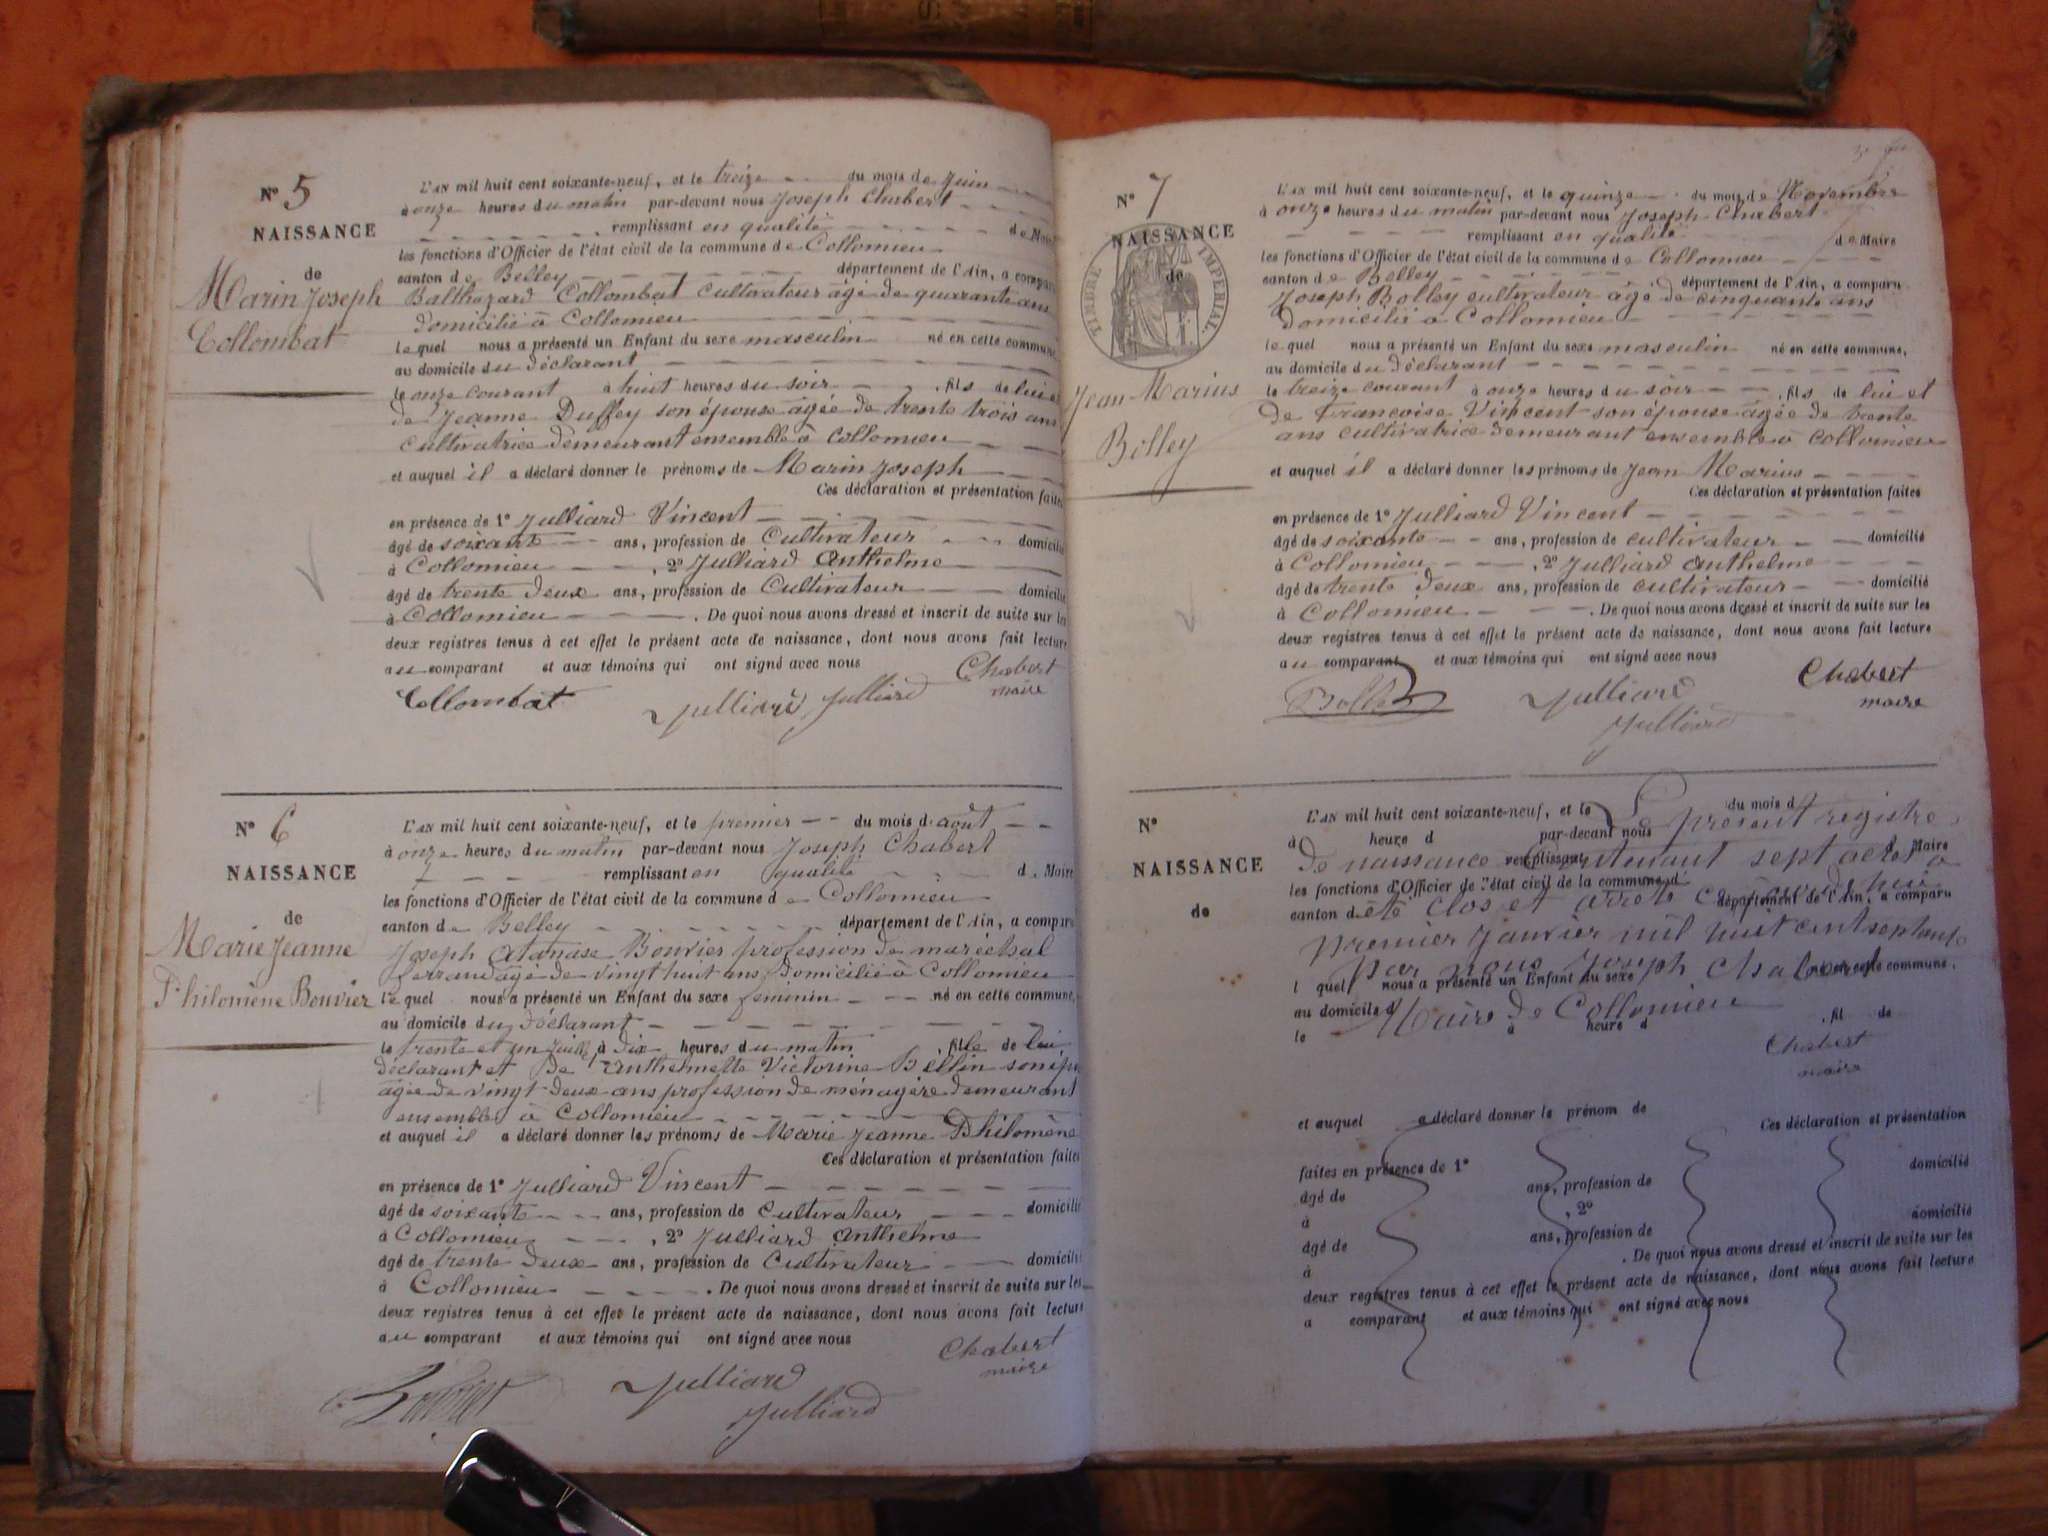 N° 5
NAISSANCE
de
Marin Joseph
Collombat
L'AN mil huit cent soixante-neuf, et le treize du mois de Juin
à onze heures du matin par-devant nous Joseph Chabert
remplissant en qualité de Maire
les fonctions d'Officier de l'état civil de la commune de Collomieu
canton de Belley département de l'Ain, a comparu
Balthazard Collombat cultivateur âgé de quarante ans
domicilié à Collomieu
le quel nous a présenté un Enfant du sexe masculin né en cette commune,
au domicile du déclarant
le onze courant à huit heures du soir , fils de lui et
de Jeanne Duffey son épouse âgée de trente trois ans
cultivatrice demeurant ensemble à Collomieu
et auquel il a déclaré donner le prénoms de Marin Joseph
Ces déclaration et présentation faites
en présence de 1° Julliard Vincent
âgé de soixante ans, profession de Cultivateur domicilié
à Collomieu , 2° Julliard Anthelme
âgé de trente deux ans, profession de Cultivateur domicilié
à Collomieu . De quoi nous avons dressé et inscrit de suite sur les
deux registres tenus à cet effet le présent acte de naissance, dont nous avons fait lecture
au comparant et aux témoins qui ont signé avec nous
Collombat Julliard Julliard Chabert
maire
N° 6
NAISSANCE
de
Marie Jeanne
Philomène Bouvier
L'AN mil huit cent soixante-neuf, et le premier du mois d'août
à onze heures du matin par-devant nous Joseph Chabert
remplissant en qualité de Maire
les fonctions d'Officier de l'état civil de la commune de Collomieu
canton de Belley département de l'Ain, a comparu
Joseph Atanase Bouvier profession de maréchal
ferrand âgé de vingt huit ans domicilié à Collomieu
le quel nous a présenté un Enfant du sexe féminin né en cette commune,
au domicile du déclarant
le trente et un Juillet à dix heures du matin , fille de lui
déclarant et de Anthelmette Victorine Bellin son
âgée de vingt deux ans profession de ménagère demeurant
ensemble à Collomieu
et auquel il a déclaré donner les prénoms de Marie Jeanne Philomène
Ces déclaration et présentation faites
en présence de 1° Julliard Vincent
âgé de soixante ans, profession de Cultivateur domicilié
à Collomieu , 2° Julliard Anthelme
âgé de trente deux ans, profession de Cultivateur domicilié
à Collomieu . De quoi nous avons dressé et inscrit de suite sur les
deux registres tenus à cet effet le présent acte de naissance, dont nous avons fait lecture
au comparant et aux témoins qui ont signé avec nous
Julliard Chabert
Julliard maire
N° 7
NAISSANCE
de
TIMBRE IMPÉRIAL.
Jean Marius
Bolley
L'AN mil huit cent soixante-neuf, et le quinze du mois de Novembre
à onze heures du matin par-devant nous Joseph Chabert
remplissant en qualité de Maire
les fonctions d'Officier de l'état civil de la commune de Collomieu
canton de Belley département de l'Ain, a comparu
Joseph Bolley cultivateur âgé de cinquante ans
domicilié à Collomieu
le quel nous a présenté un Enfant du sexe masculin né en cette commune,
au domicile du déclarant
le treize courant à onze heures du soir , fils de lui et
de Francoise Vincent son épouse âgée de trente
ans cultivatrice demeurant ensemble à Collomieu
et auquel il a déclaré donner les prénoms de Jean Marius
Ces déclaration et présentation faites
en présence de 1° Julliard Vincent
âgé de soixante ans, profession de cultivateur domicilié
à Collomieu , 2° Julliard Anthelme
âgé de trente deux ans, profession de cultivateur domicilié
à Collomieu . De quoi nous avons dressé et inscrit de suite sur les
deux registres tenus à cet effet le présent acte de naissance, dont nous avons fait lecture
au comparant et aux témoins qui ont signé avec nous
Bolley Julliard Chabert
Julliard maire
N°
NAISSANCE
de
L'AN mil huit cent soixante-neuf, et le du mois d
Le présent registre
à heure d par-devant nous
de naissance contenant sept actes a
remplissant d Maire
les fonctions d'Officier de l'état civil de la commune d
été clos et arrêté
canton d département de l'Ain, a comparu
premier Janvier mil huit cent septante
par nous Joseph Chabert
l quel nous a présenté un Enfant du sexe né en cette commune,
au domicile d
Maire de Collomieu
le à heure d , fil de
Chabert
maire
et auquel a déclaré donner le prénom de
Ces déclaration et présentation
faites en présence de 1° domicilié
âgé de ans, profession de
à , 2° domicilié
âgé de ans, profession de
à . De quoi nous avons dressé et inscrit de suite sur les
deux registres tenus à cet effet le présent acte de naissance, dont nous avons fait lecture
a comparant et aux témoins qui ont signé avec nous